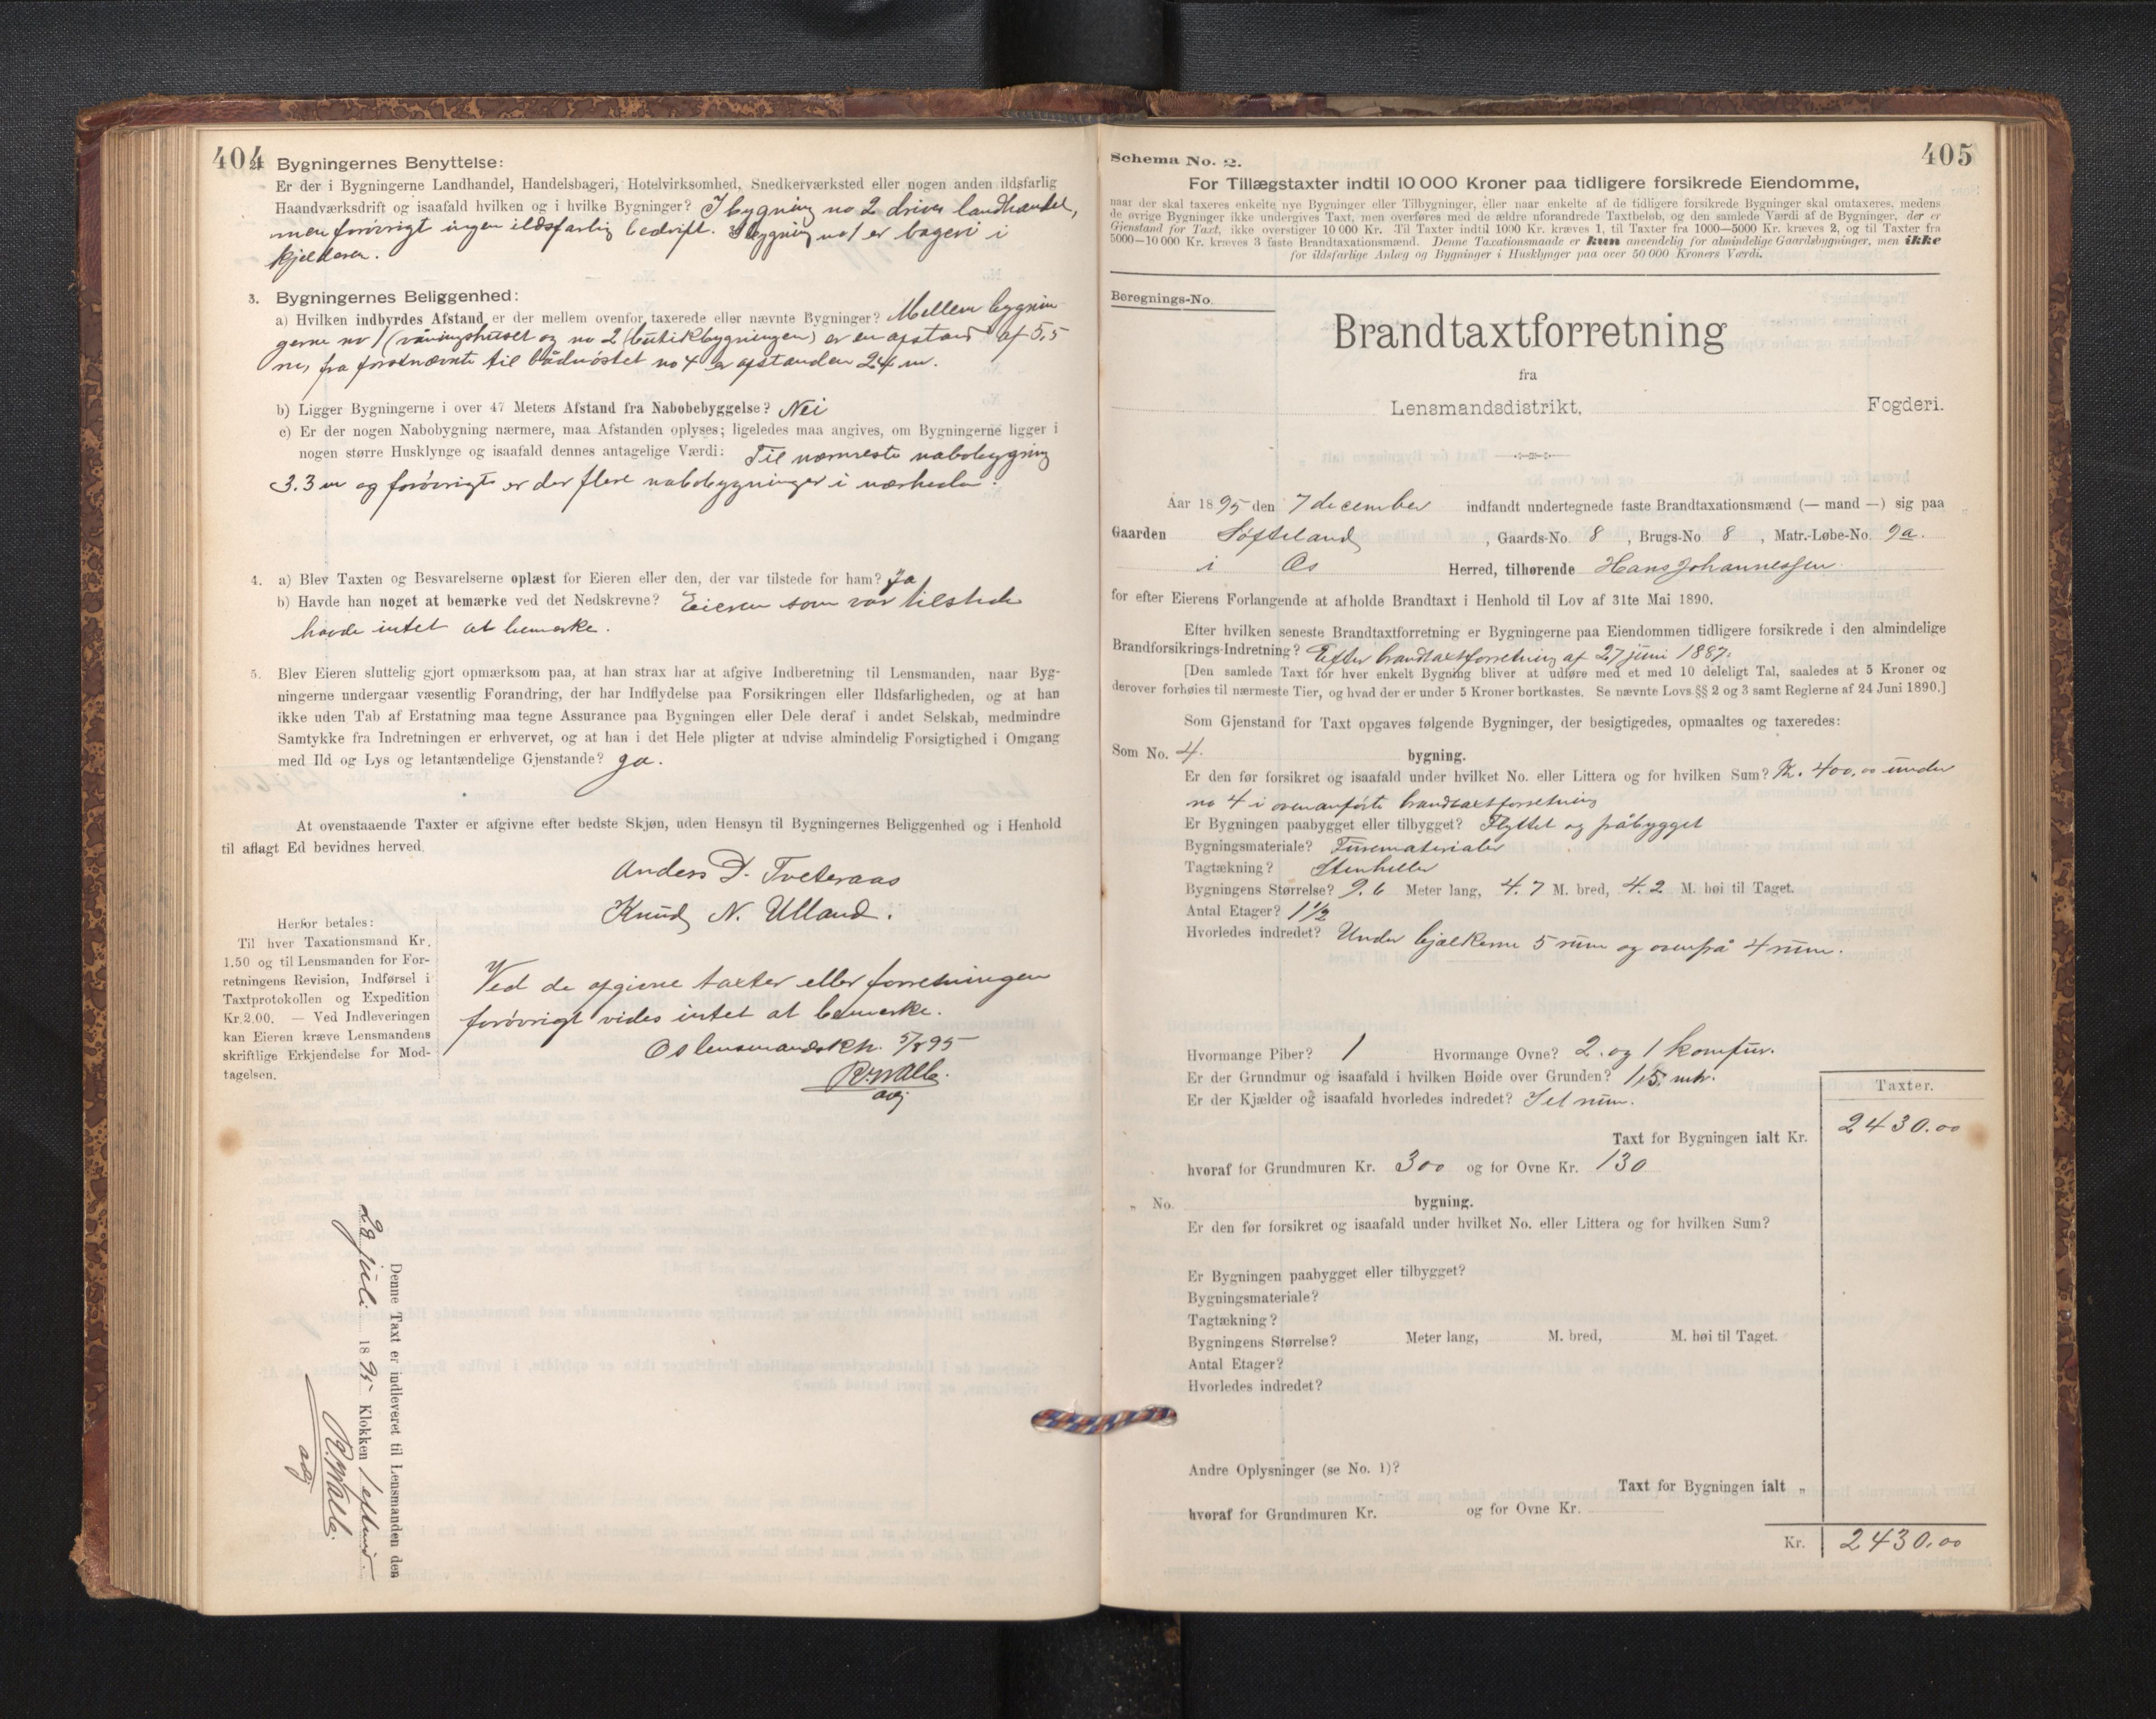 404
2. Bygningernes Benyttelse:
Er der i Bygningerne Landhandel, Handelsbageri, Hotelvirksomhed, Snedkerværksted eller nogen anden ildsfarlig
Haandværksdrift og isaafald hvilken og i hvilke Bygninger? I bygning no 2 drives landhandel,
men forøvrigt ingen ildsfarlig bedrift. I bygning no 1 er bageri i
kjelderen.
3. Bygningernes Beliggenhed:
a) Hvilken indbyrdes Afstand er der mellem ovenfor taxerede eller nævnte Bygninger? Mellem bygnin
gerne no 1 (våningshuset og no 2 (butikbygningen) er en afstand af 5,5
m, fra førstnævnte til bådnøstet no 4 er afstanden 24 m.
b) Ligger Bygningerne i over 47 Meters Afstand fra Nabobebyggelse? Nei
c) Er der nogen Nabobygning nærmere, maa Afstanden oplyses; ligeledes maa angives, om Bygningerne ligger i
nogen større Husklynge og isaafald dennes antagelige Værdi: Til nærmeste nabobygning
3.3 m og forøvrigt er der flere nabobygninger i nærheden.
4. a) Blev Taxten og Besvarelserne oplæst for Eieren eller den, der var tilstede for ham? Ja
b) Havde han noget at bemærke ved det Nedskrevne? Eieren som var tilstede
havde intet at bemerke.
5. Blev Eieren sluttelig gjort opmærksom paa, at han strax har at afgive Indberetning til Lensmanden, naar Byg-
ningerne undergaar væsentlig Forandring, der har Indflydelse paa Forsikringen eller Ildsfarligheden, og at han
ikke uden Tab af Erstatning maa tegne Assurance paa Bygningen eller Dele deraf i andet Selskab, medmindre
Samtykke fra Indretningen er erhvervet, og at han i det Hele pligter at udvise almindelig Forsigtighed i Omgang
med Ild og Lys og letantændelige Gjenstande? Ja.
At ovenstaaende Taxter er afgivne efter bedste Skjøn, uden Hensyn til Bygningernes Beliggenhed og i Henhold
til aflagt Ed bevidnes herved.
Anders D. Tveteraas
Knud N. Ulland.
Herfor betales:
Til hver Taxationsmand Kr.
1.50 og til Lensmanden for For-
retningens Revision, Indførsel i
Taxtprotokollen og Expedition
Kr. 2.00. — Ved Indleveringen
kan Eieren kræve Lensmandens
skriftlige Erkjendelse for Mod-
tagelsen.
Ved de afgivne taxter eller forretningen
forøvrigt vides intet at bemerke.
Os lensmandsktr. 5/8 95
adj
Denne Taxt er indleveret til Lensmanden den
29 juli 1895 Klokken 1 eftmd.
adj
405
Schema No. 2.
For Tillægstaxter indtil 10 000 Kroner paa tidligere forsikrede Eiendomme,
naar der skal taxeres enkelte nye Bygninger eller Tilbygninger, eller naar enkelte af de tidligere forsikrede Bygninger skal omtaxeres, medens
de øvrige Bygninger ikke undergives Taxt, men overføres med de ældre uforandrede Taxtbeløb, og den samlede Værdi af de Bygninger, der er
Gjenstand for Taxt, ikke overstiger 10 000 Kr. Til Taxter indtil 1000 Kr. kræves 1, til Taxter fra 1000—5000 Kr. kræves 2, og til Taxter fra
5000—10 000 Kr. kræves 3 faste Brandtaxationsmænd. Denne Taxationsmaade er kun anvendelig for almindelige Gaardsbygninger, men ikke
for ildsfarlige Anlæg og Bygninger i Husklynger paa over 50 000 Kroners Værdi.
Beregnings-No.
Brandtaxtforretning
fra
Lensmandsdistrikt, Fogderi.
Aar 1895 den 7 december indfandt undertegnede faste Brandtaxationsmænd (— mand —) sig paa
Gaarden Søfteland, Gaards-No. 8, Brugs-No. 8, Matr.-Løbe-No. 9a.
i Os Herred, tilhørende Hans Johannessen
for efter Eierens Forlangende at afholde Brandtaxt i Henhold til Lov af 31te Mai 1890.
Efter hvilken seneste Brandtaxtforretning er Bygningerne paa Eiendommen tidligere forsikrede i den almindelige
Brandforsikrings-Indretning? Efter brandtaxtforretning af 27 juni 1887.
[Den samlede Taxt for hver enkelt Bygning bliver at udføre med et med 10 deleligt Tal, saaledes at 5 Kroner og
derover forhøies til nærmeste Tier, og hvad der er under 5 Kroner bortkastes. Se nævnte Lovs §§ 2 og 3 samt Reglerne af 24 Juni 1890.]
Som Gjenstand for Taxt opgaves følgende Bygninger, der besigtigedes, opmaaltes og taxeredes:
Som No. 4. bygning.
Er den før forsikret og isaafald under hvilket No. eller Littera og for hvilken Sum? Kr. 400.00 under
no 4 i ovenanførte brandtaxtforretning
Er Bygningen paabygget eller tilbygget? Flyttet og påbygget
Bygningsmateriale? Furematerialer
Tagtækning? Stenheller
Bygningens Størrelse? 9.6 Meter lang, 4.7 M. bred, 4.2 M. høi til Taget.
Antal Etager? 1 1/2
Hvorledes indredet? Under bjælkerne 5 rum og ovenpå 4 rum.
Hvormange Piber? 1 Hvormange Ovne? 2. og 1 komfur.
Er der Grundmur og isaafald i hvilken Høide over Grunden? 1,5 mtr.
Er der Kjælder og isaafald hvorledes indredet? I et rum.
Taxter.
Taxt for Bygningen ialt Kr. 2430.00
hvoraf for Grundmuren Kr. 300 og for Ovne Kr. 130
„ No. bygning.
Er den før forsikret og isaafald under hvilket No. eller Littera og for hvilken Sum?
Er Bygningen paabygget eller tilbygget?
Bygningsmateriale?
Tagtækning?
Bygningens Størrelse? Meter lang, M. bred, M. høi til Taget.
Antal Etager?
Hvorledes indredet?
Andre Oplysninger (se No. 1)?
Taxt for Bygningen ialt „
hvoraf for Grundmuren Kr. og for Ovne Kr.
Kr. 2430.00